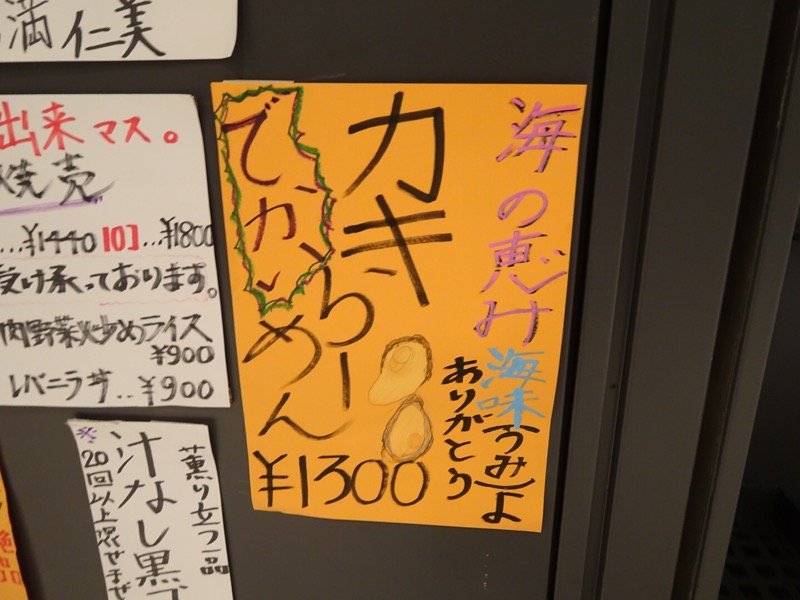 満仁美
出来マス。
焼売
…¥1440 10コ…¥1800
受け承っております。
肉野菜炒めライス
¥900
レバニラ サ…¥900
海の恵み
海味(うみ)よ
ありがとう
カキ
らーめん
でかい
¥1300
薫り立つ一品
汁なし黒
※20回以上混ぜ